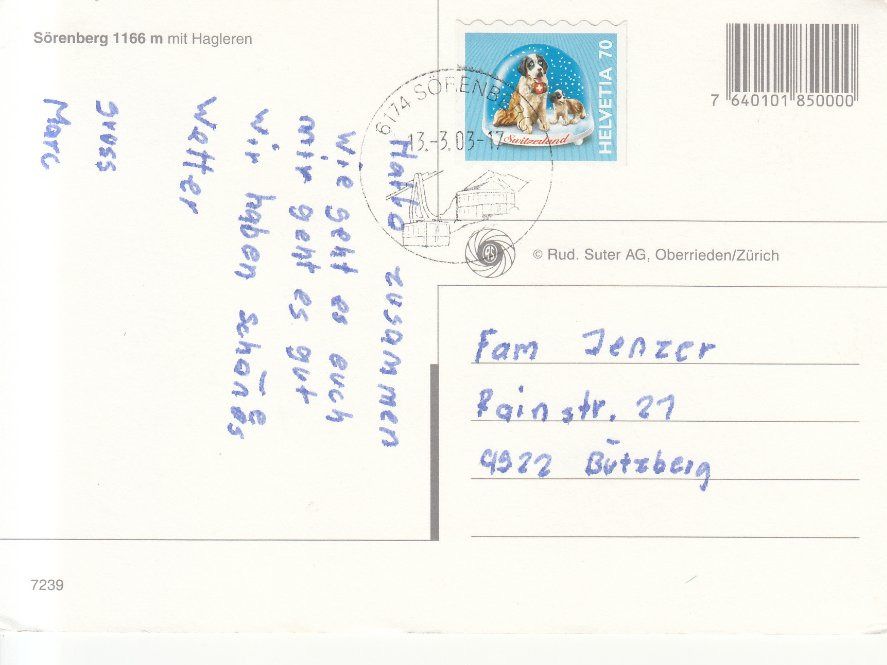 Sörenberg 1166 m mit Hagleren
Hallo zusammen
wie geht es euch
mir geht es gut
wir haben schönes
Wetter
gruss
Marc
6174 SÖRENBERG
13.-3.03-17
Switzerland
HELVETIA 70
7 640101 850000
© Rud. Suter AG, Oberrieden/Zürich
Fam Jenzer
Rainstr. 21
4922 Bützberg
7239